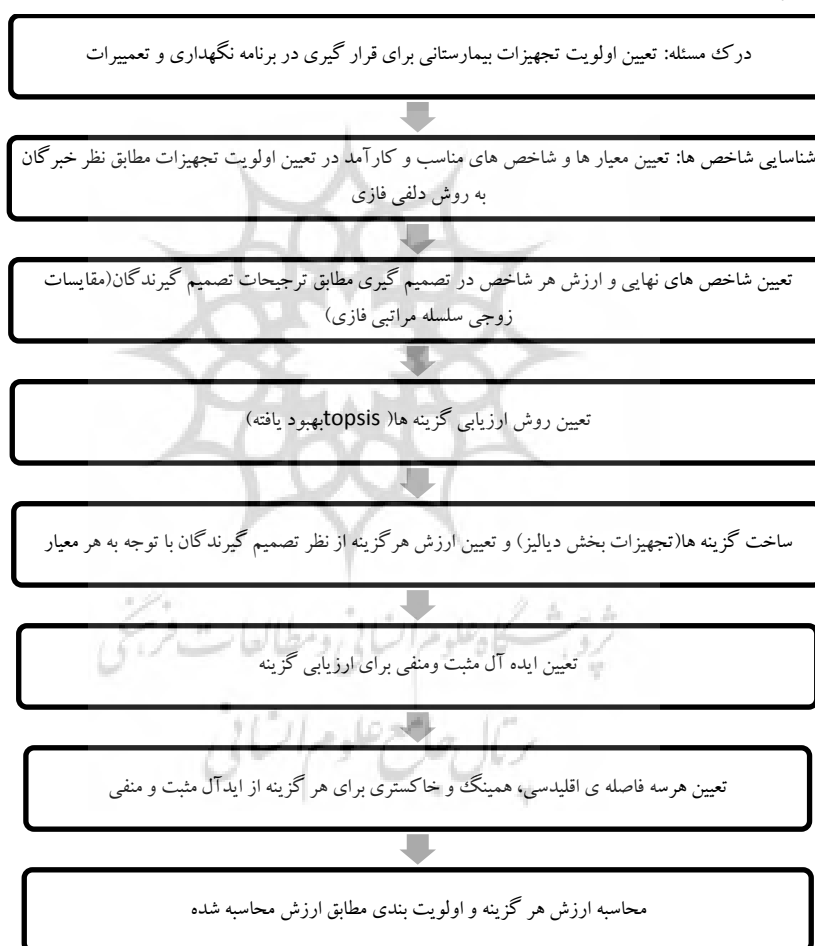 درک مسئله: تعیین اولویت تجهیزات بیمارستانی برای قرار گیری در برنامه نگهداری و تعمییرات
شناسایی شاخص ها: تعیین معیار ها و شاخص های مناسب و کارآمد در تعیین اولویت تجهیزات مطابق نظر خبرگان
به روش دلفی فازی
تعیین شاخص های نهایی و ارزش هر شاخص در تصمیم گیری مطابق ترجیحات تصمیم گیرندگان(مقایسات
زوجی سلسله مراتبی فازی)
تعیین روش ارزیابی گزینه ها( topsisبهبود یافته)
ساخت گزینه ها(تجهیزات بخش دیالیز) و تعیین ارزش هرگزینه از نظر تصمیم گیرندگان با توجه به هر معیار
پژوهشگاه علوم انسانی و مطالعات فرهنگی
تعیین ایده آل مثبت ومنفی برای ارزیابی گزینه
پرتال جامع علوم انسانی
تعیین هرسه فاصله ی اقلیدسی، همینگ و خاکستری برای هر گزینه از ایدآل مثبت و منفی
محاسبه ارزش هر گزینه و اولویت بندی مطابق ارزش محاسبه شده